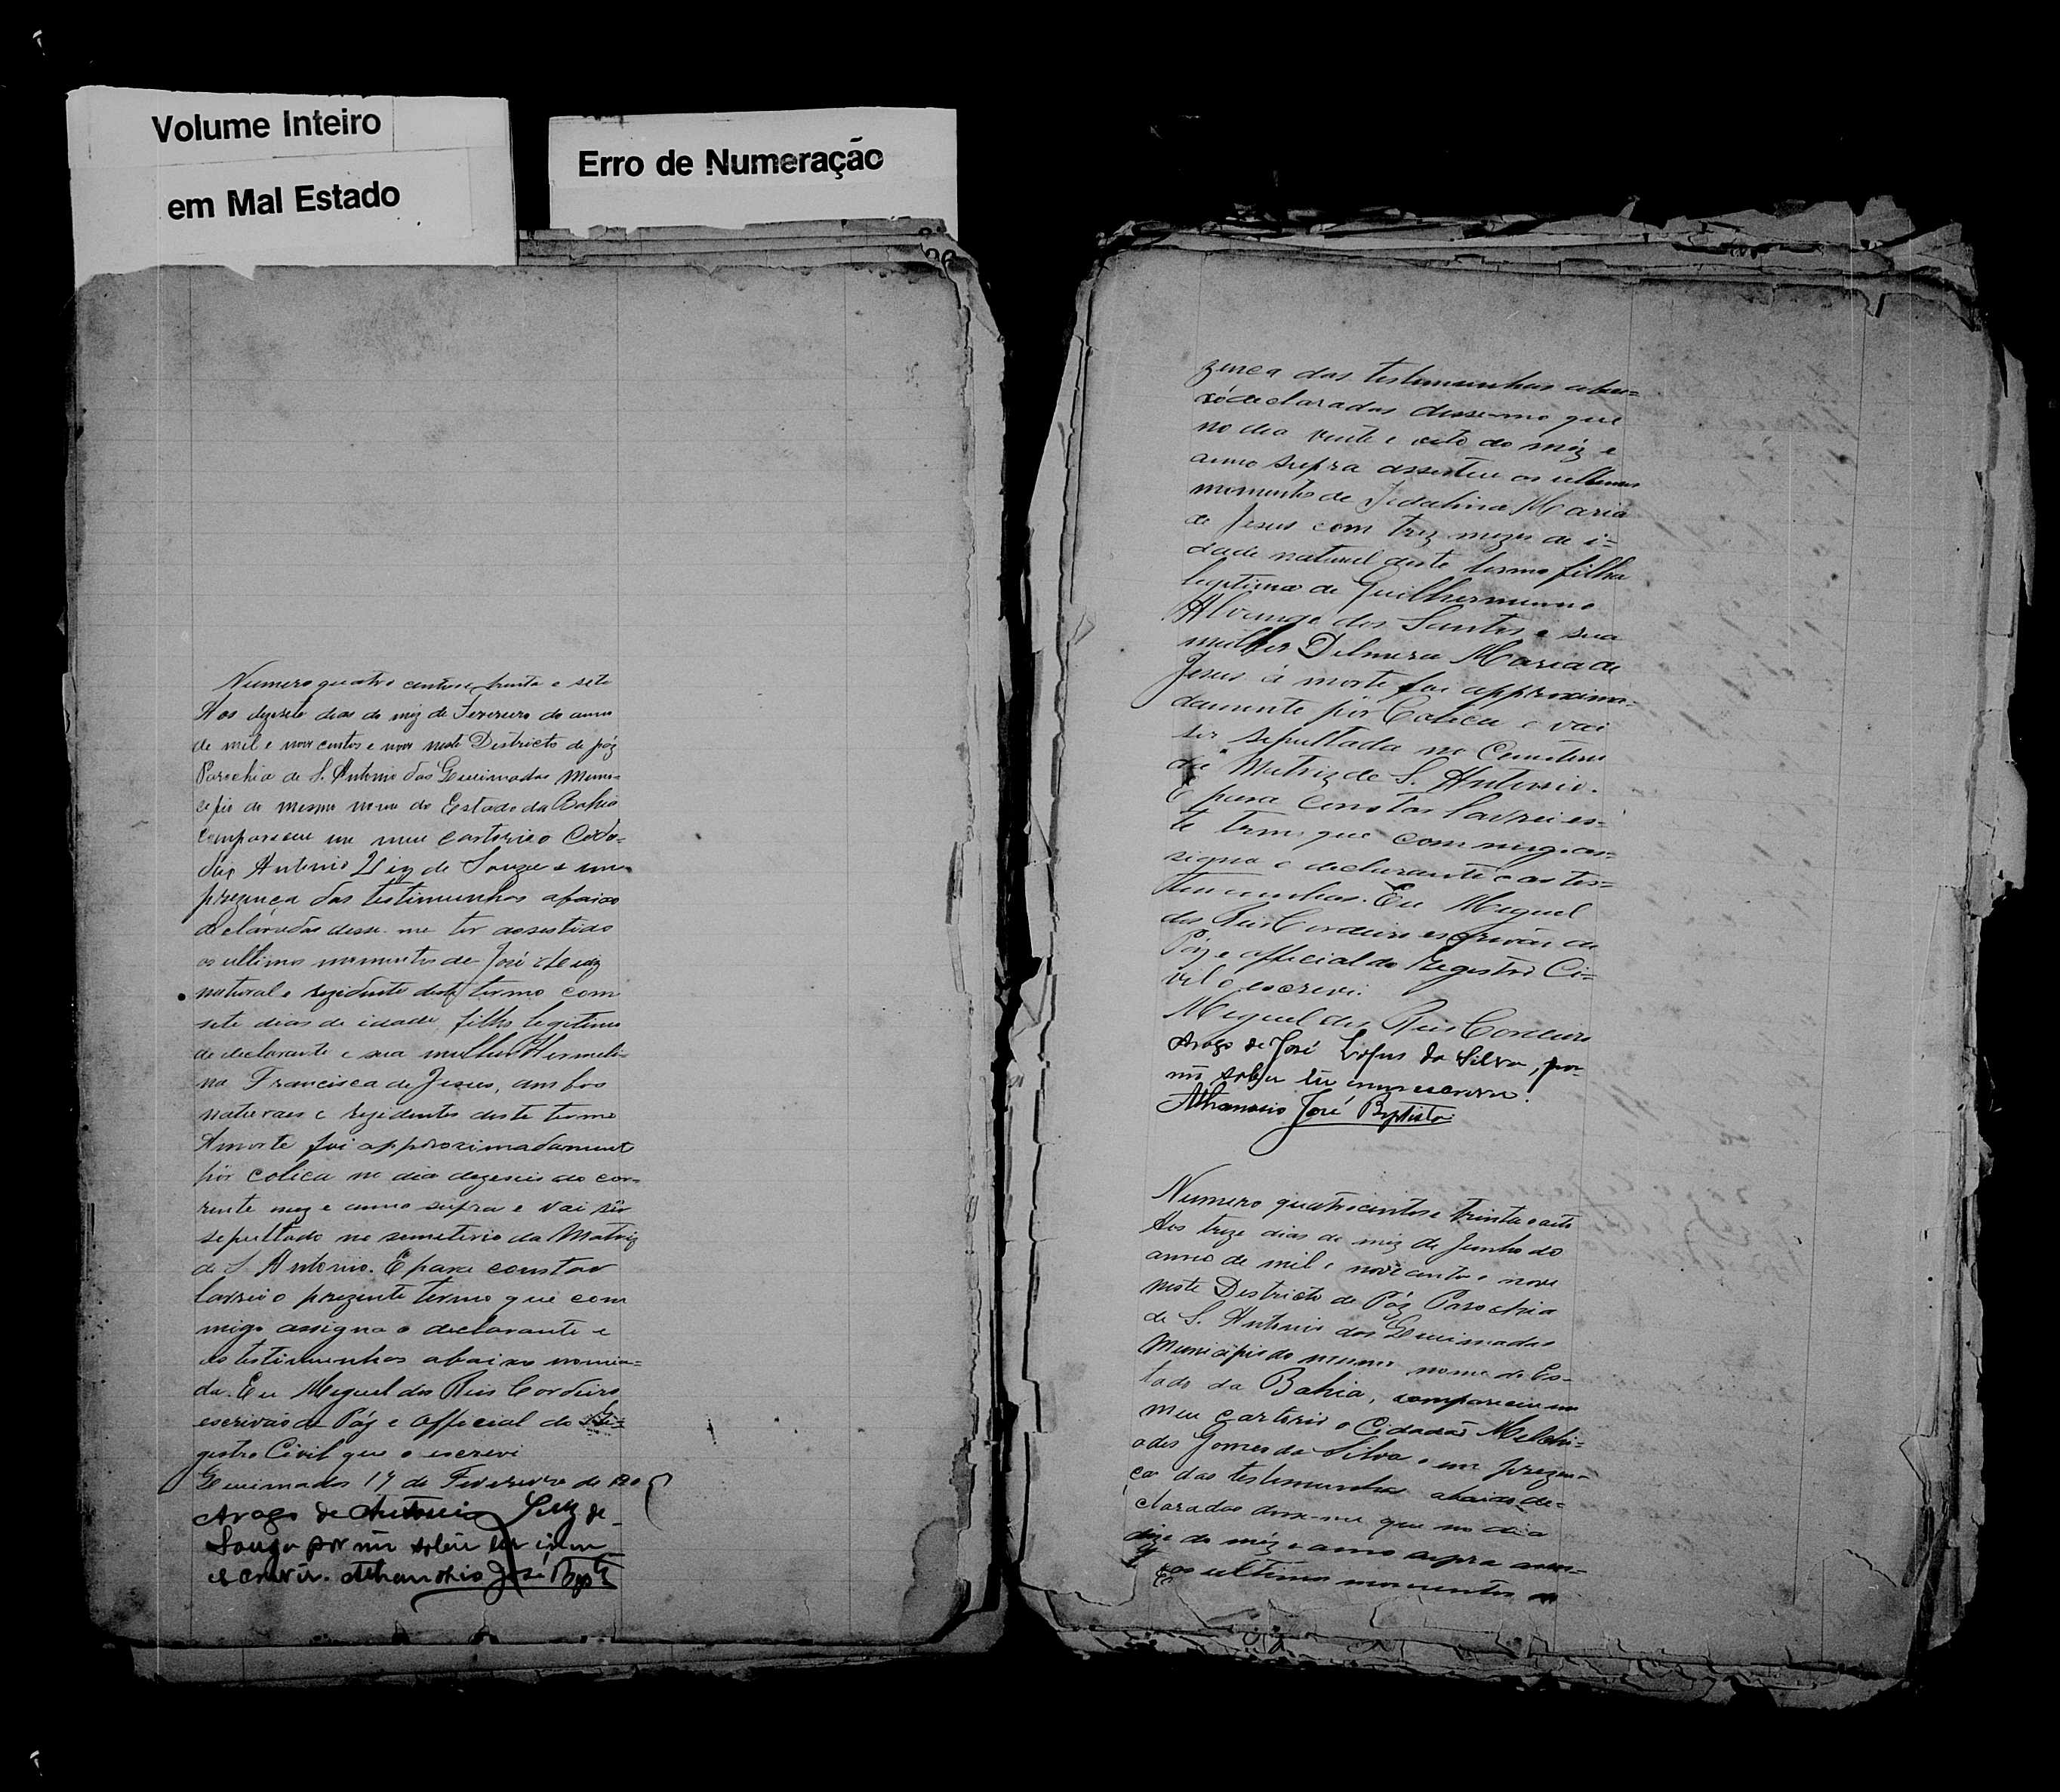 Volume Inteiro
em Mal Estado
Erro de Numeração
26
Numero quatro centos e trinta e sete
Aos dezesete dias do mez de Fevereiro do anno
de mil e nove centos e nove neste Districto de páz
Parochia de S. Antonio das Queimadas Muni-
cipio do mesmo nome do Estado da Bahia
compareceu em meu cartorio o Cida-
dão Antonio Luiz de Souza e em
prezença das testimunhas abaixo
declaradas desse-me ter assistido
os ultimos momentos de José
natural e rezidente deste termo com
sete dias de idade, filho legitimo
de declarante e sua mulher Hermeli-
na Francisca de Jesus, ambos
naturaes e rezidentes deste termo
A morte foi approximadament
por colica no dia dezeseis do cor-
rente mez e anno supra e vai sêr
sepultado no semeterio da Matriz
de S. Antonio. E para constar
lavrei o prezente termo que com
migo assigna o declarante e
as testimunhas abaixo nomia-
da. Eu Miguel dos Reis Cordeiro
escrivão de Páz e Official do Re-
gistro Civil que o escrevi
Queimadas 17 de Fevereiro de
Arogo de Antonio Luiz de
Souza por não saber ler i
escrever. Athanasio José Bapta
zenca das testimunhas abai=
xo declaradas disse-me que
no dia vinte e oito do méz e
anno supra assisteu os ultimos
momentos de Idalina Maria
de Jesus com trez mezes de i=
dade natural deste termo filha
legitima de Guilhermino
dos Santos e sua
mulher Delmira Maria de
Jesus á morte foi approxima-
damente pôr Colica e vai
ser sepultada no Cemiterio
da Matriz de S. Antonio.
E para constar lavrei es=
te termo que com migo as=
signa o declarante e as tes=
timunhas. Eu Miguel
dos Reis Cordeiro escrivão de
Páz e official do Registro Ci=
vil o escrevi.
Miguel dos Reis Cordeiro
Arogo de José Lopes da Silva, por
não saber ler nem escrever.
Athanasio José Baptista
Numero quatrocentos e trinta e oito
Aos treze dias do mez de Junho do
anno de mil e novecentos e nove
neste Districto de Páz Parochia
de S. Antonio das Queimadas
Municipio do mesmo nome do Es-
tado da Bahia, compareceu em
meu cartorio o Cidadão Melchi=
ades Gomes da Silva e em prezen-
ça das testimunhas abaixo de=
claradas disse-me que no dia
doze do méz e anno supra assis=
os ultimos momentos de